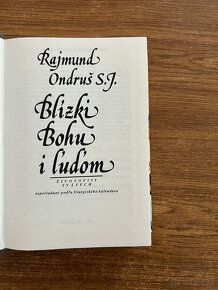 Rajmund
Ondruš S.J.
Blízki
Bohu
i ľuďom
ŽIVOTOPISY
SVÄTÝCH
usporiadané podľa liturgického kalendára